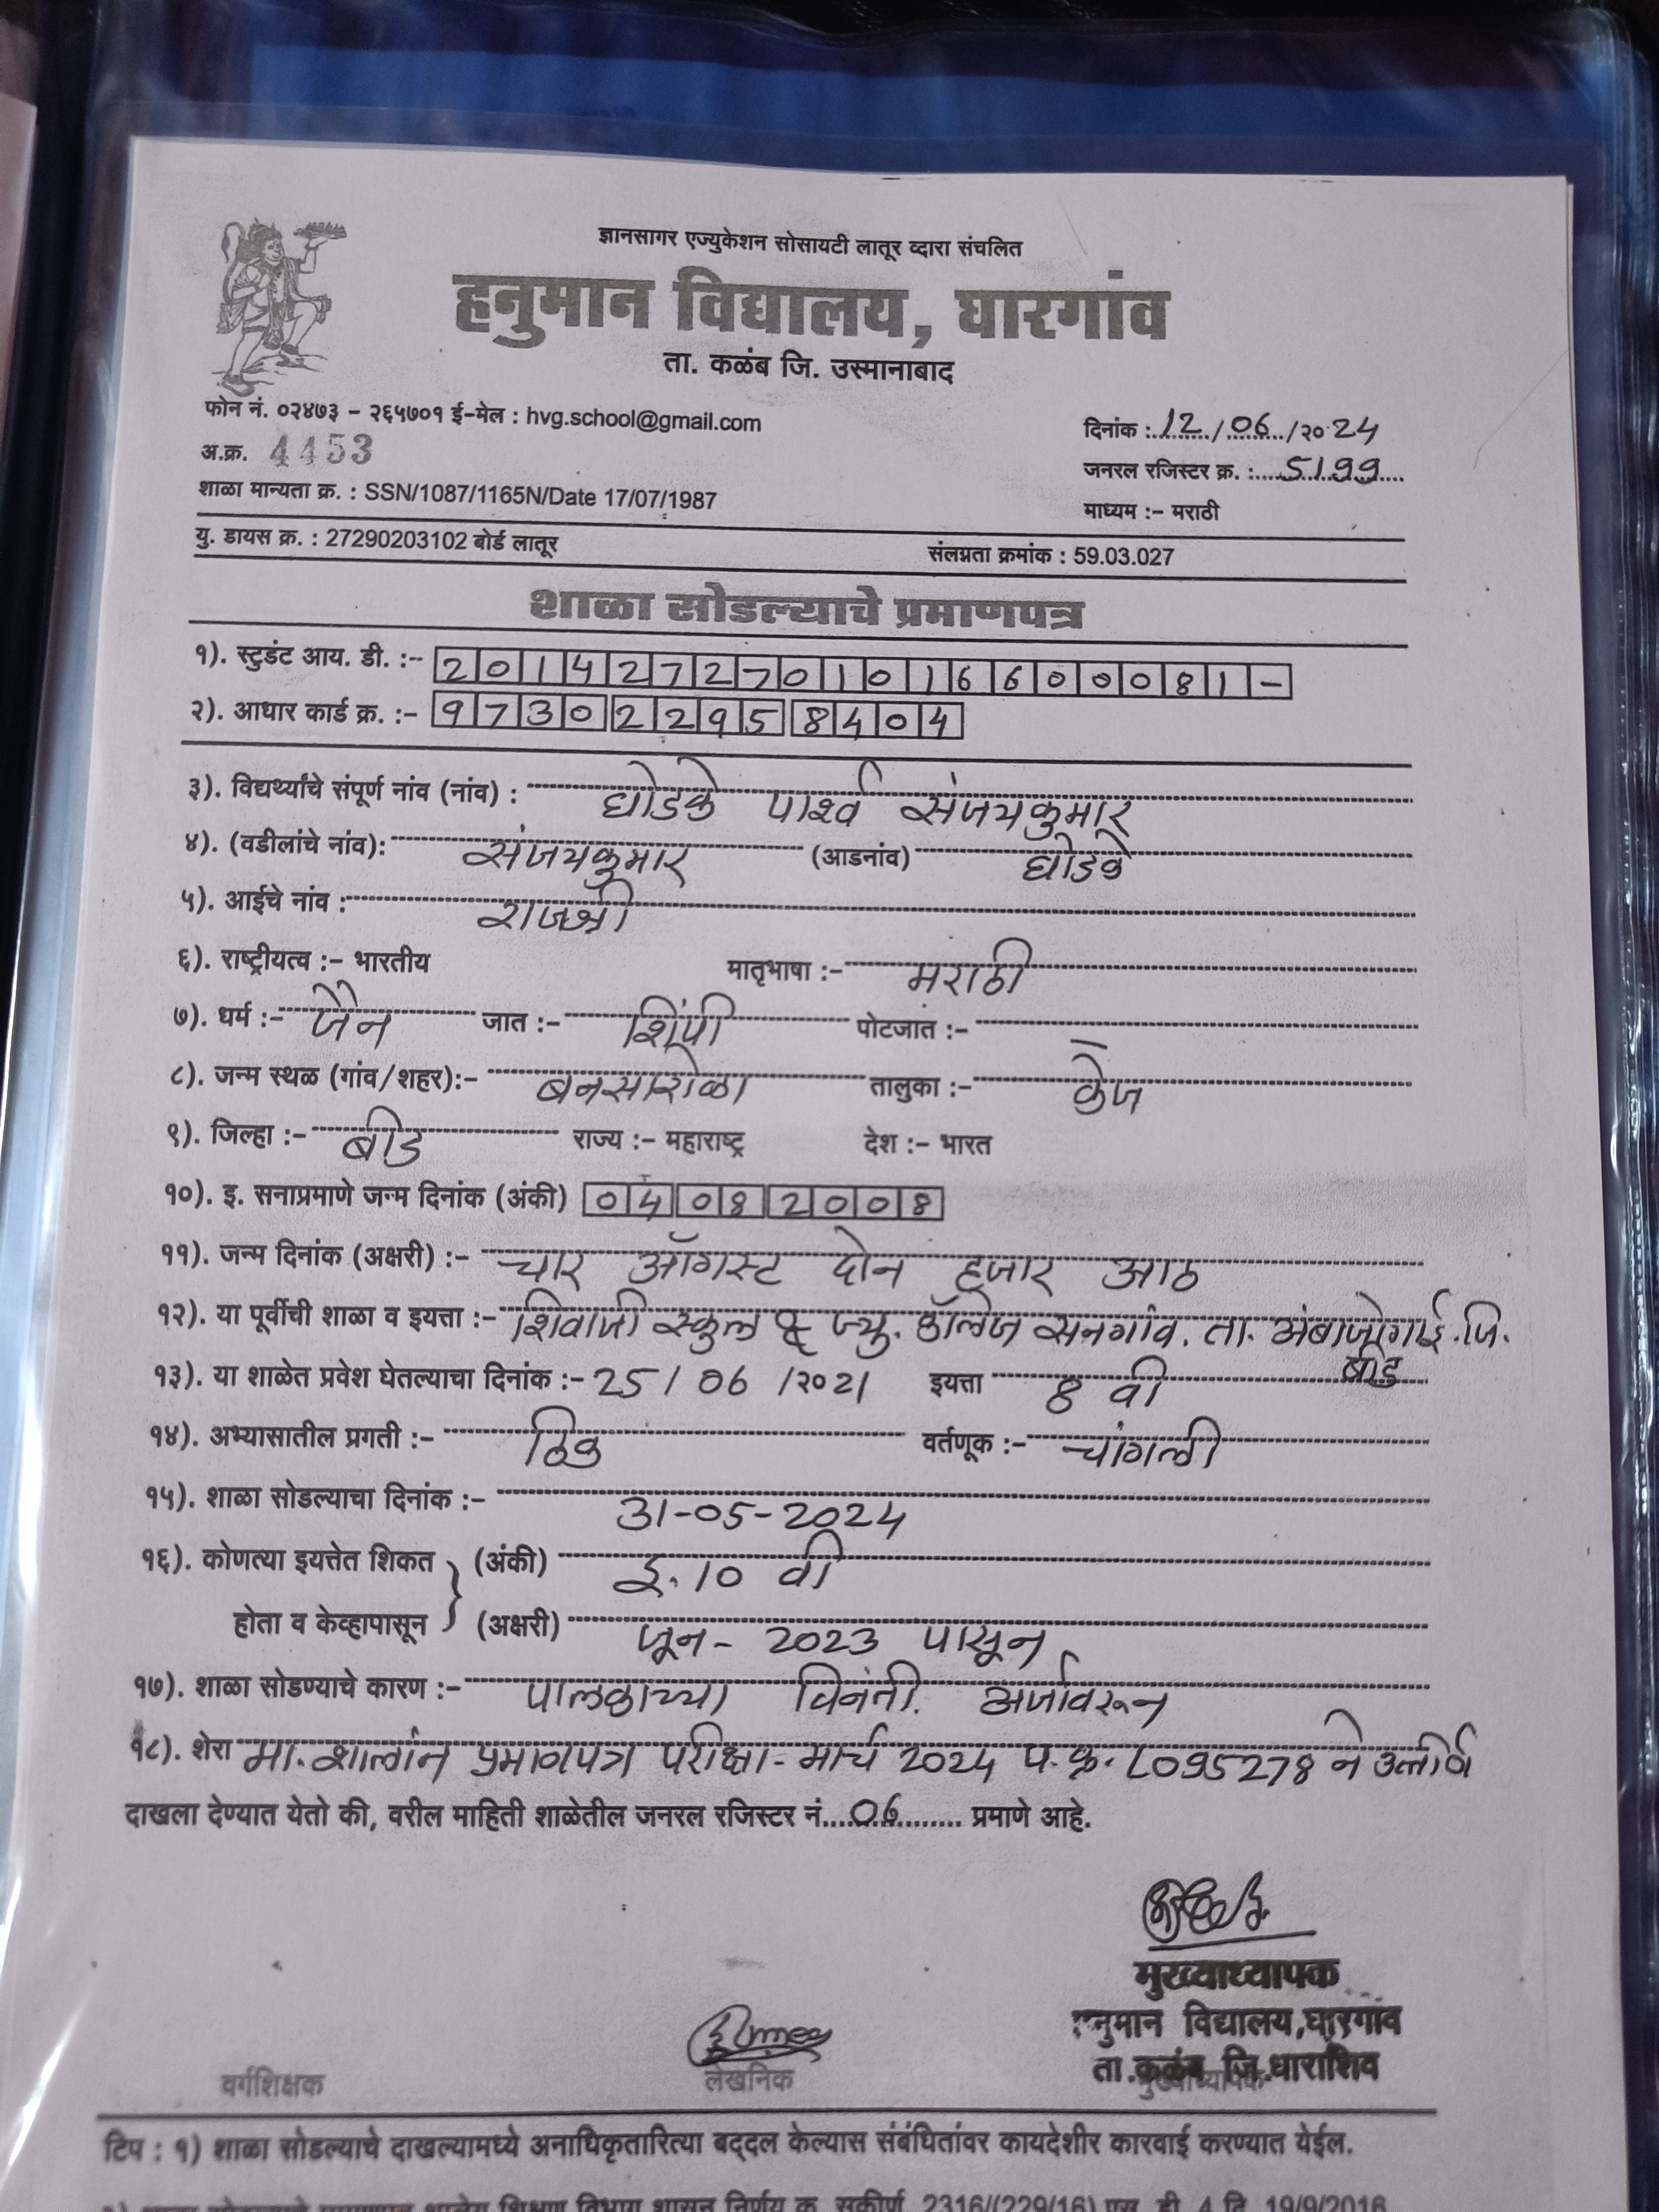 ज्ञानसागर एज्युकेशन सोसायटी लातूर व्दारा संचलित
हनुमान विद्यालय, घारगांव
ता. कळंब जि. उस्मानाबाद
फोन नं. ०२४७३ - २६५७०१ ई-मेल : hvg.school@gmail.com
दिनांक : 12 / 06 / २० 24
अ.क्र. 4453
जनरल रजिस्टर क्र. : 5199
शाळा मान्यता क्र. : SSN/1087/1165N/Date 17/07/1987
माध्यम :- मराठी
यु. डायस क्र. : 27290203102 बोर्ड लातूर संलग्नता क्रमांक : 59.03.027
शाळा सोडल्याचे प्रमाणपत्र
१). स्टुडंट आय. डी. :- 2014272701016600081-
२). आधार कार्ड क्र. :- 9730 2295 8404
३). विद्यर्थ्यांचे संपूर्ण नांव (नांव) : घोडके पार्श्व संजयकुमार
४). (वडीलांचे नांव): संजयकुमार (आडनांव) घोडके
५). आईचे नांव : राजश्री
६). राष्ट्रीयत्व :- भारतीय मातृभाषा :- मराठी
७). धर्म :- जैन जात :- शिंपी पोटजात :- -
८). जन्म स्थळ (गांव/शहर):- बनसारोळा तालुका :- केज
९). जिल्हा :- बीड राज्य :- महाराष्ट्र देश :- भारत
१०). इ. सनाप्रमाणे जन्म दिनांक (अंकी) 04082008
११). जन्म दिनांक (अक्षरी) :- चार ऑगस्ट दोन हजार आठ
१२). या पूर्वीची शाळा व इयत्ता :- शिवाजी स्कुल & ज्यु. कॉलेज सनगांव. ता. अंबाजोगाई. जि. बीड
१३). या शाळेत प्रवेश घेतल्याचा दिनांक :- 25 / 06 / २०21 इयत्ता 8 वी
१४). अभ्यासातील प्रगती :- ठिक वर्तणूक :- चांगली
१५). शाळा सोडल्याचा दिनांक :- 31-05-2024
१६). कोणत्या इयत्तेत शिकत (अंकी) इ. 10 वी
होता व केव्हापासून (अक्षरी) जून - 2023 पासून
१७). शाळा सोडण्याचे कारण :- पालकाच्या विनंती. अर्जावरून
१८). शेरा मा. शालांत प्रमाणपत्र परीक्षा - मार्च 2024 प. क्र. L095278 ने उत्तीर्ण
दाखला देण्यात येतो की, वरील माहिती शाळेतील जनरल रजिस्टर नं. 06 प्रमाणे आहे.
मुख्याध्यापक
हनुमान विद्यालय, घारगांव
ता. कळंब जि. धाराशिव
वर्गशिक्षक लेखनिक मुख्याध्यापक
टिप : १) शाळा सोडल्याचे दाखल्यामध्ये अनाधिकृतारित्या बद्दल केल्यास संबंधितांवर कायदेशीर कारवाई करण्यात येईल.